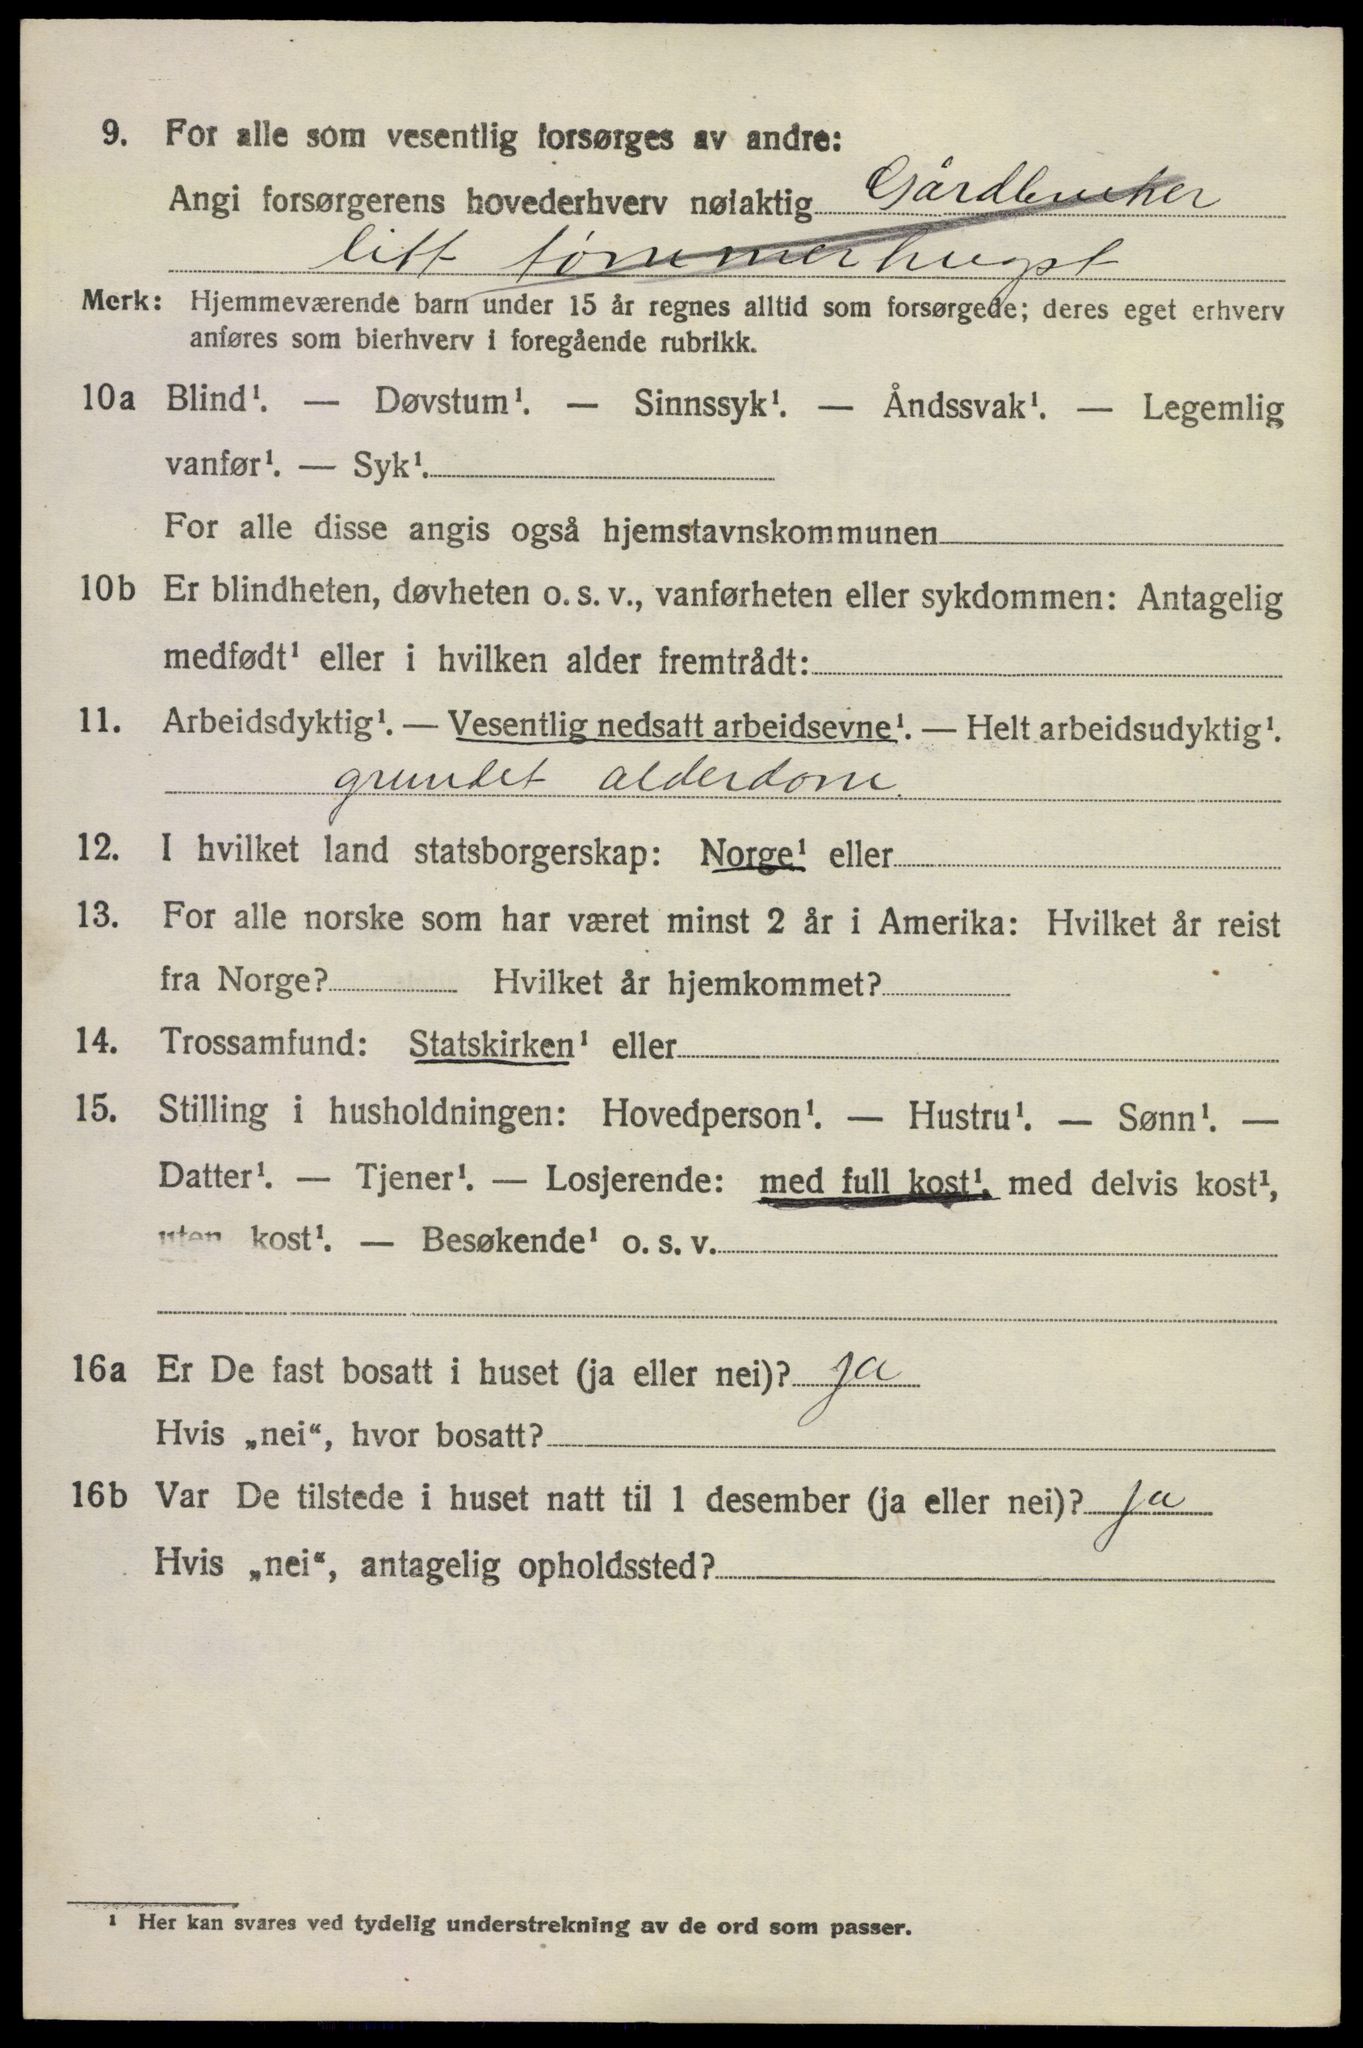 9. For alle som vesentlig forsørges av andre:
Angi forsørgerens hovederhverv nøiaktig Gårdbruker
litt tømmerhugst
Merk: Hjemmeværende barn under 15 år regnes alltid som forsørgede; deres eget erhverv
anføres som bierhverv i foregående rubrikk.
10a Blind¹. — Døvstum¹. — Sinnssyk¹. — Åndssvak¹. — Legemlig
vanfør¹. — Syk¹.
For alle disse angis også hjemstavnskommunen
10b Er blindheten, døvheten o. s. v., vanførheten eller sykdommen: Antagelig
medfødt¹ eller i hvilken alder fremtrådt:
11. Arbeidsdyktig¹. — Vesentlig nedsatt arbeidsevne¹. — Helt arbeidsudyktig¹.
grundet alderdom.
12. I hvilket land statsborgerskap: Norge¹ eller
13. For alle norske som har været minst 2 år i Amerika: Hvilket år reist
fra Norge? Hvilket år hjemkommet?
14. Trossamfund: Statskirken¹ eller
15. Stilling i husholdningen: Hovedperson¹. — Hustru¹. — Sønn¹. —
Datter¹. — Tjener¹. — Losjerende: med full kost¹, med delvis kost¹,
uten kost¹. — Besøkende¹ o. s. v.
16a Er De fast bosatt i huset (ja eller nei)? ja
Hvis „nei“, hvor bosatt?
16b Var De tilstede i huset natt til 1 desember (ja eller nei)? ja
Hvis „nei“, antagelig opholdssted?
¹ Her kan svares ved tydelig understrekning av de ord som passer.